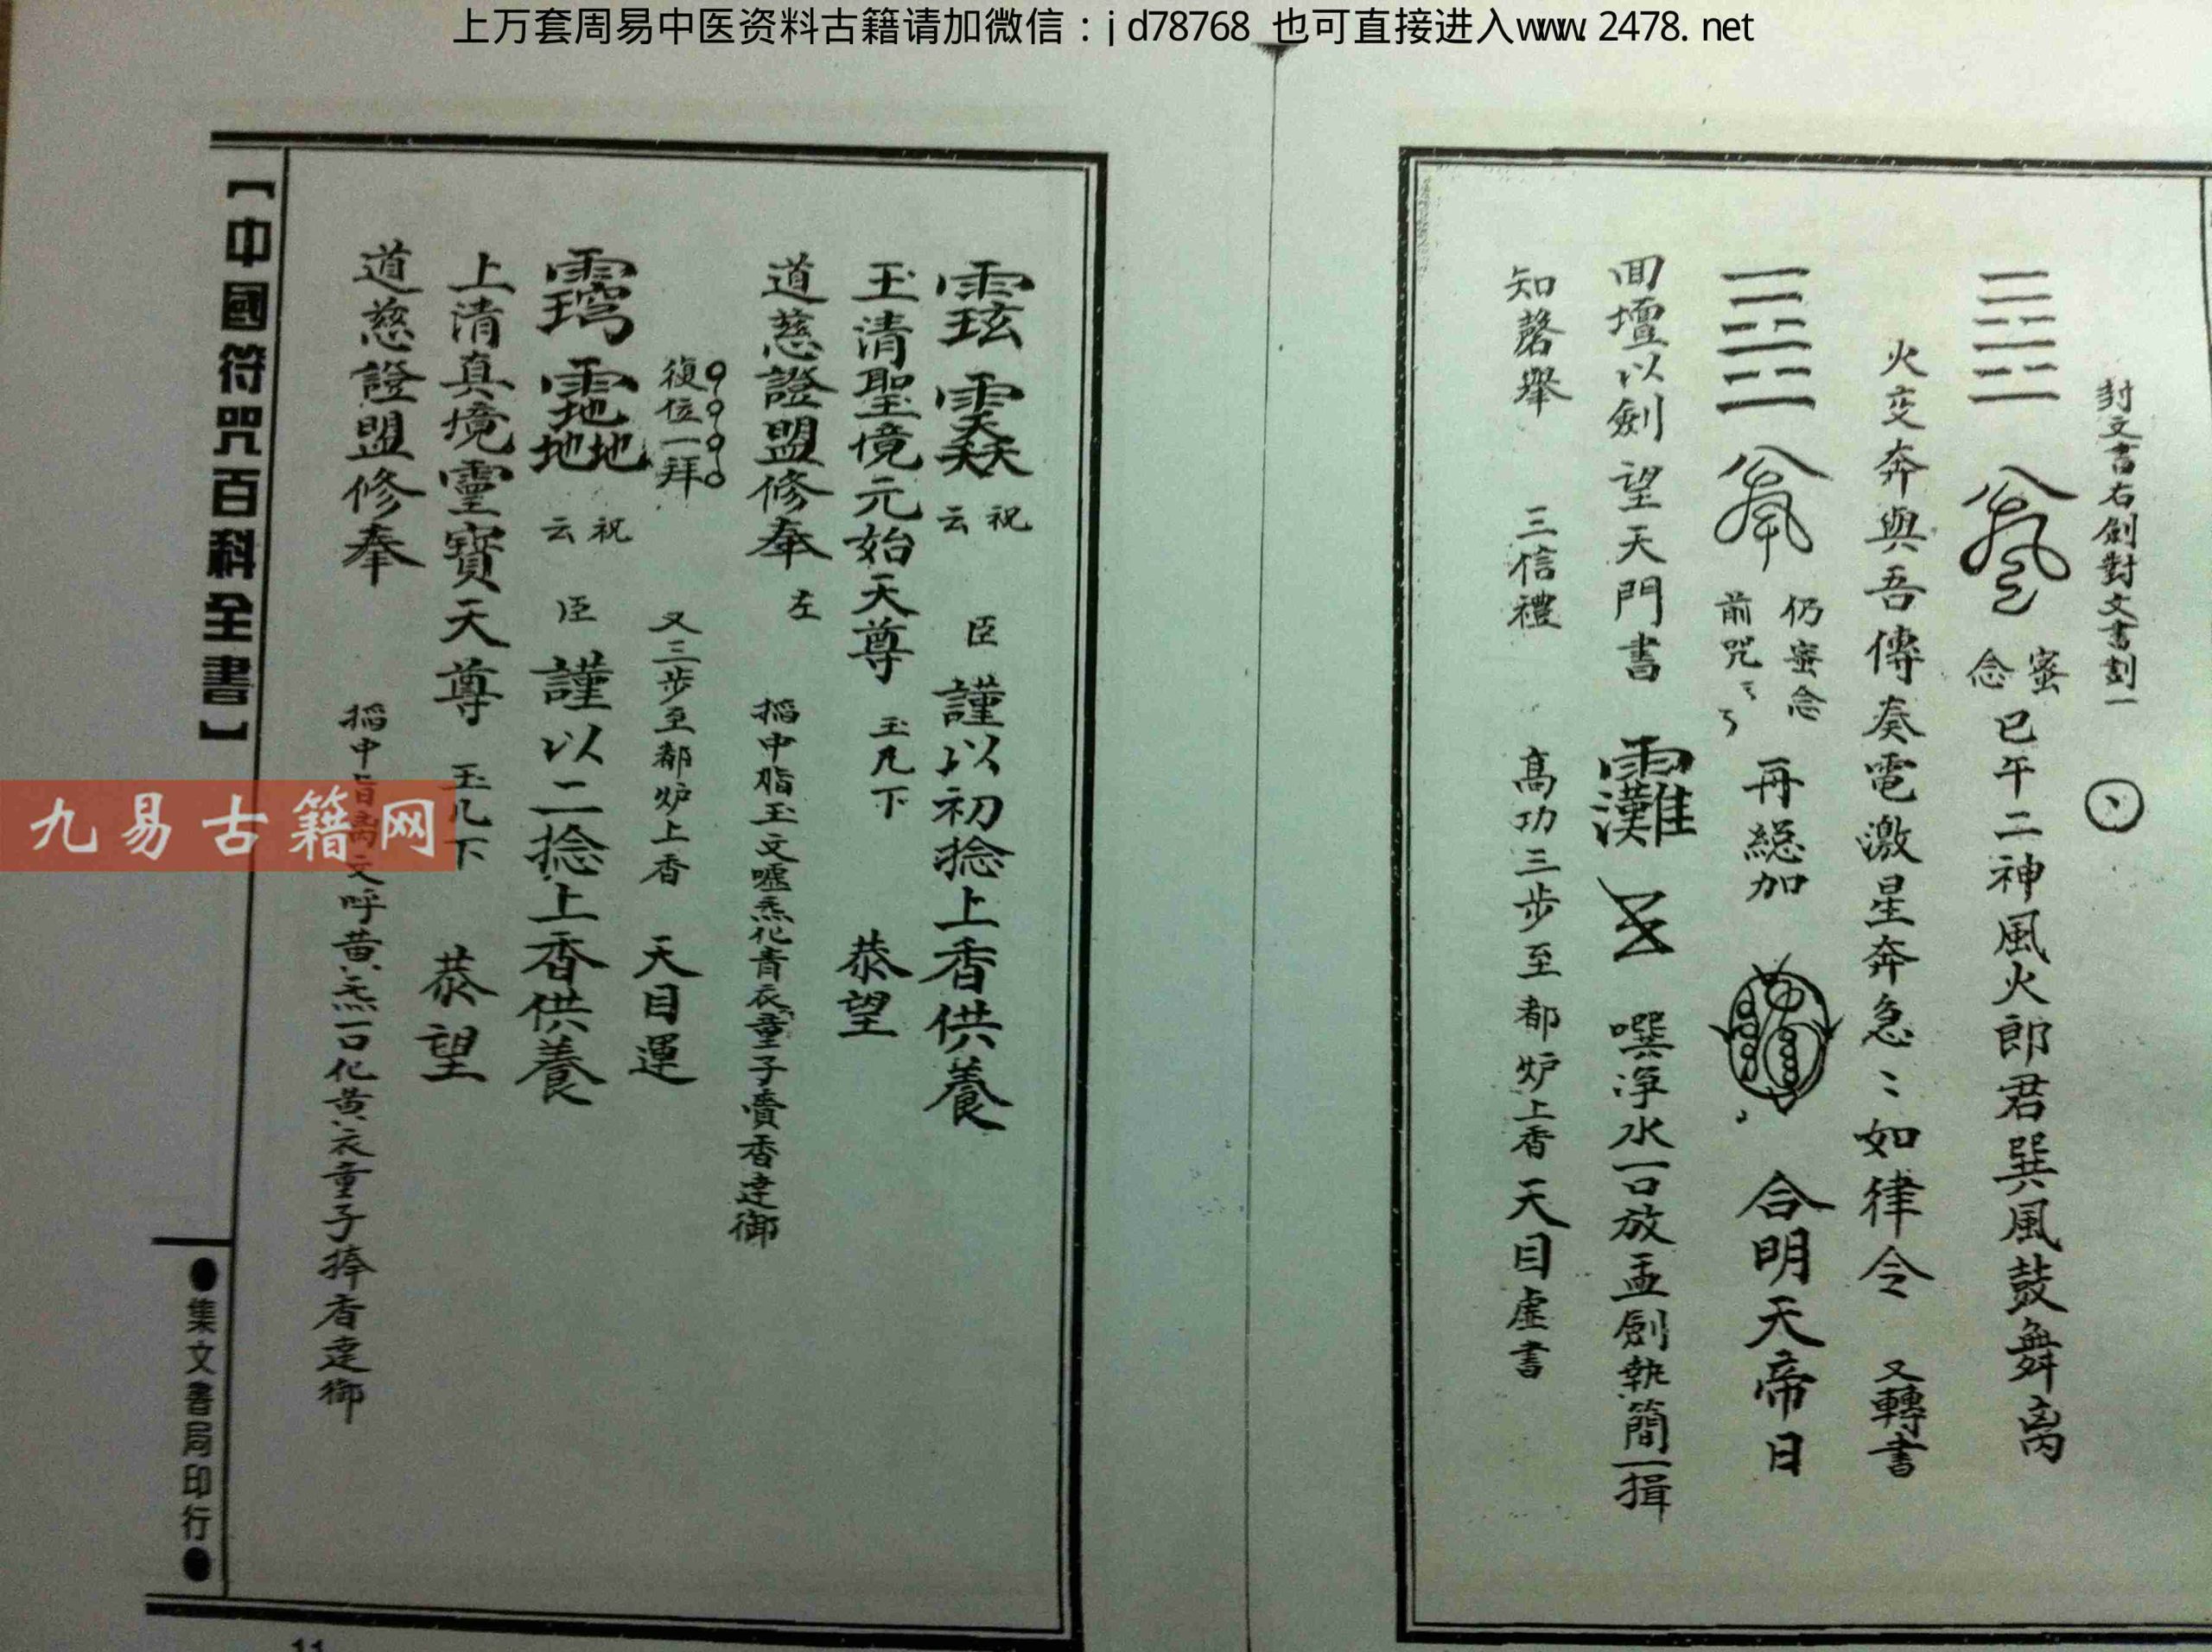 上万套周易中医资料古籍请加微信：jd78768 也可直接进入www.2478.net
封文書右劍對文書劃一
蜜念
巳午二神風火郎君巽風鼓舞离
火交奔與吾傳奏電激星奔急〻如律令 又轉書
仍蜜念前咒
再總加 合明天帝日
回壇以劍望天門書 噀淨水一口放盂劍執簡一揖
知磬舉 三信禮 高功三步至都炉上香天目虛書
祝云 臣 謹以初捻上香供養
玉清聖境元始天尊 玉几下 恭望
道慈證盟修奉 左 搯中脂玉文噓炁化青衣童子賫香達御
復位一拜 又三步至都炉上香 天目運
祝云 臣 謹以二捻上香供養
上清真境靈寶天尊 玉几下 恭望
道慈證盟修奉 搯中 文呼黄炁一口化黄衣童子捧香達御
【中國符咒百科全書】
●集文書局印行●
九易古籍网
11